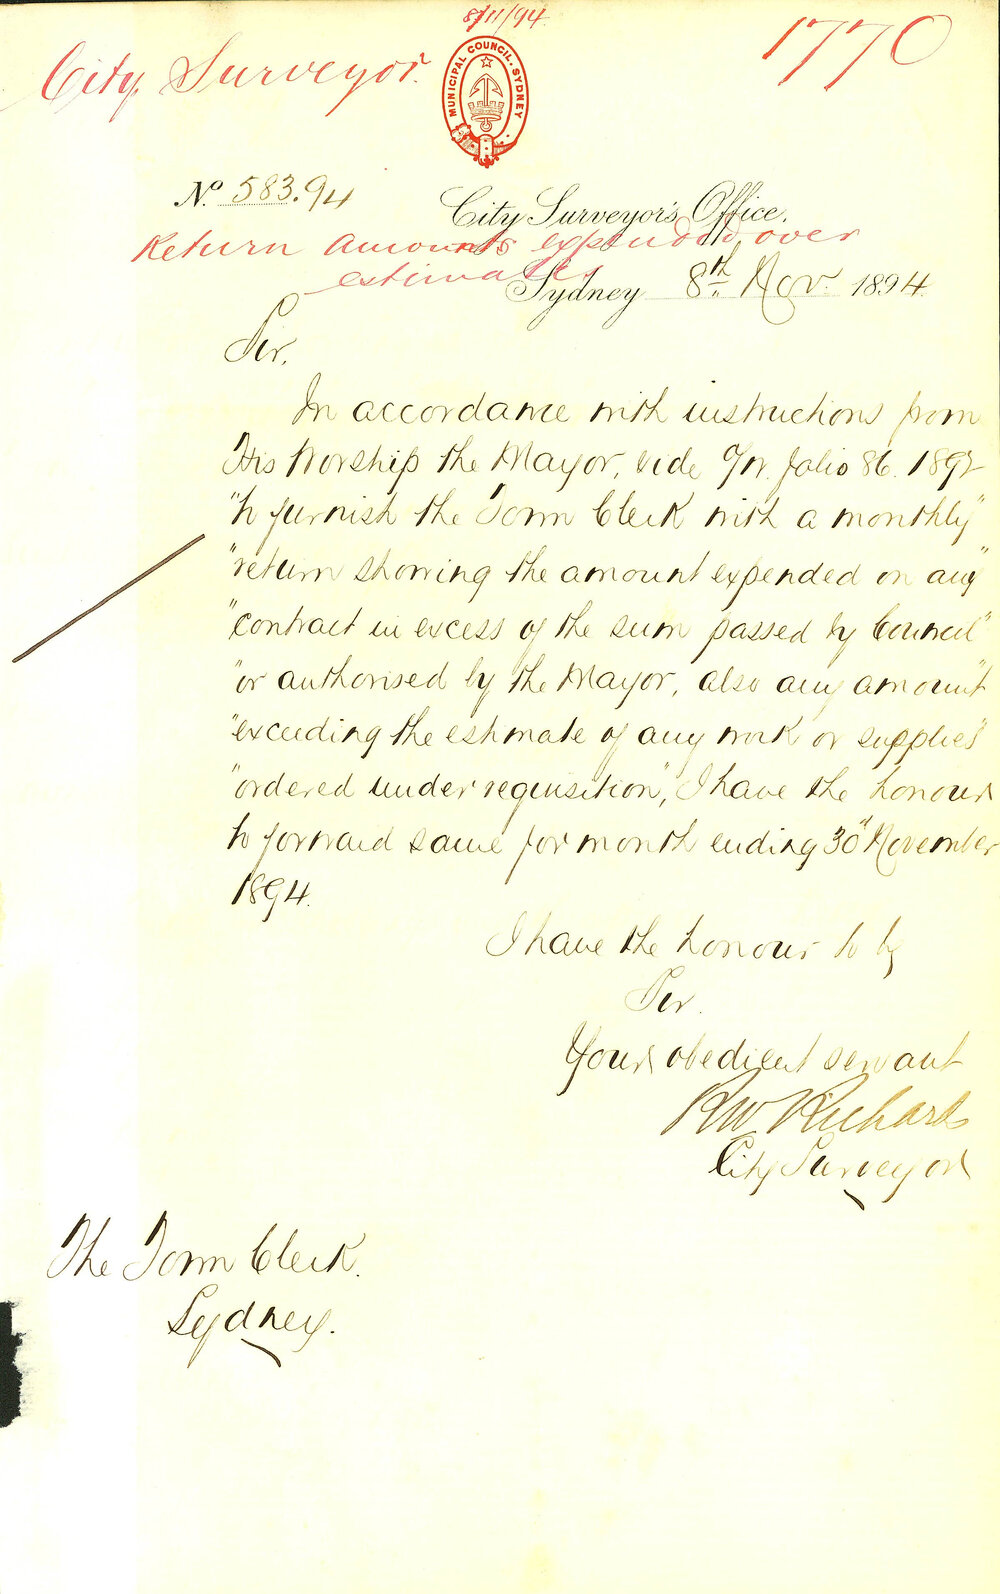 8/11/94
1770
City Surveyor
MUNICIPAL COUNCIL. SYDNEY
No. 583.94
City Surveyor's Office,
Return amounts expended over
estimate
Sydney 8th Nov. 1894
Sir,
In accordance with instructions from
His Worship the Mayor, vide folio 86. 1892
"to furnish the Town Clerk with a monthly"
"return showing the amount expended on any"
"contract in excess of the sum passed by Council"
"or authorised by the Mayor, also any amount"
"exceeding the estimate of any work or supplies"
"ordered under requisition", I have the honour
to forward same for month ending 30th November
1894.
I have the honour to be
Sir.
Your obedient servant
RW Richards
City Surveyor
The Town Clerk.
Sydney.